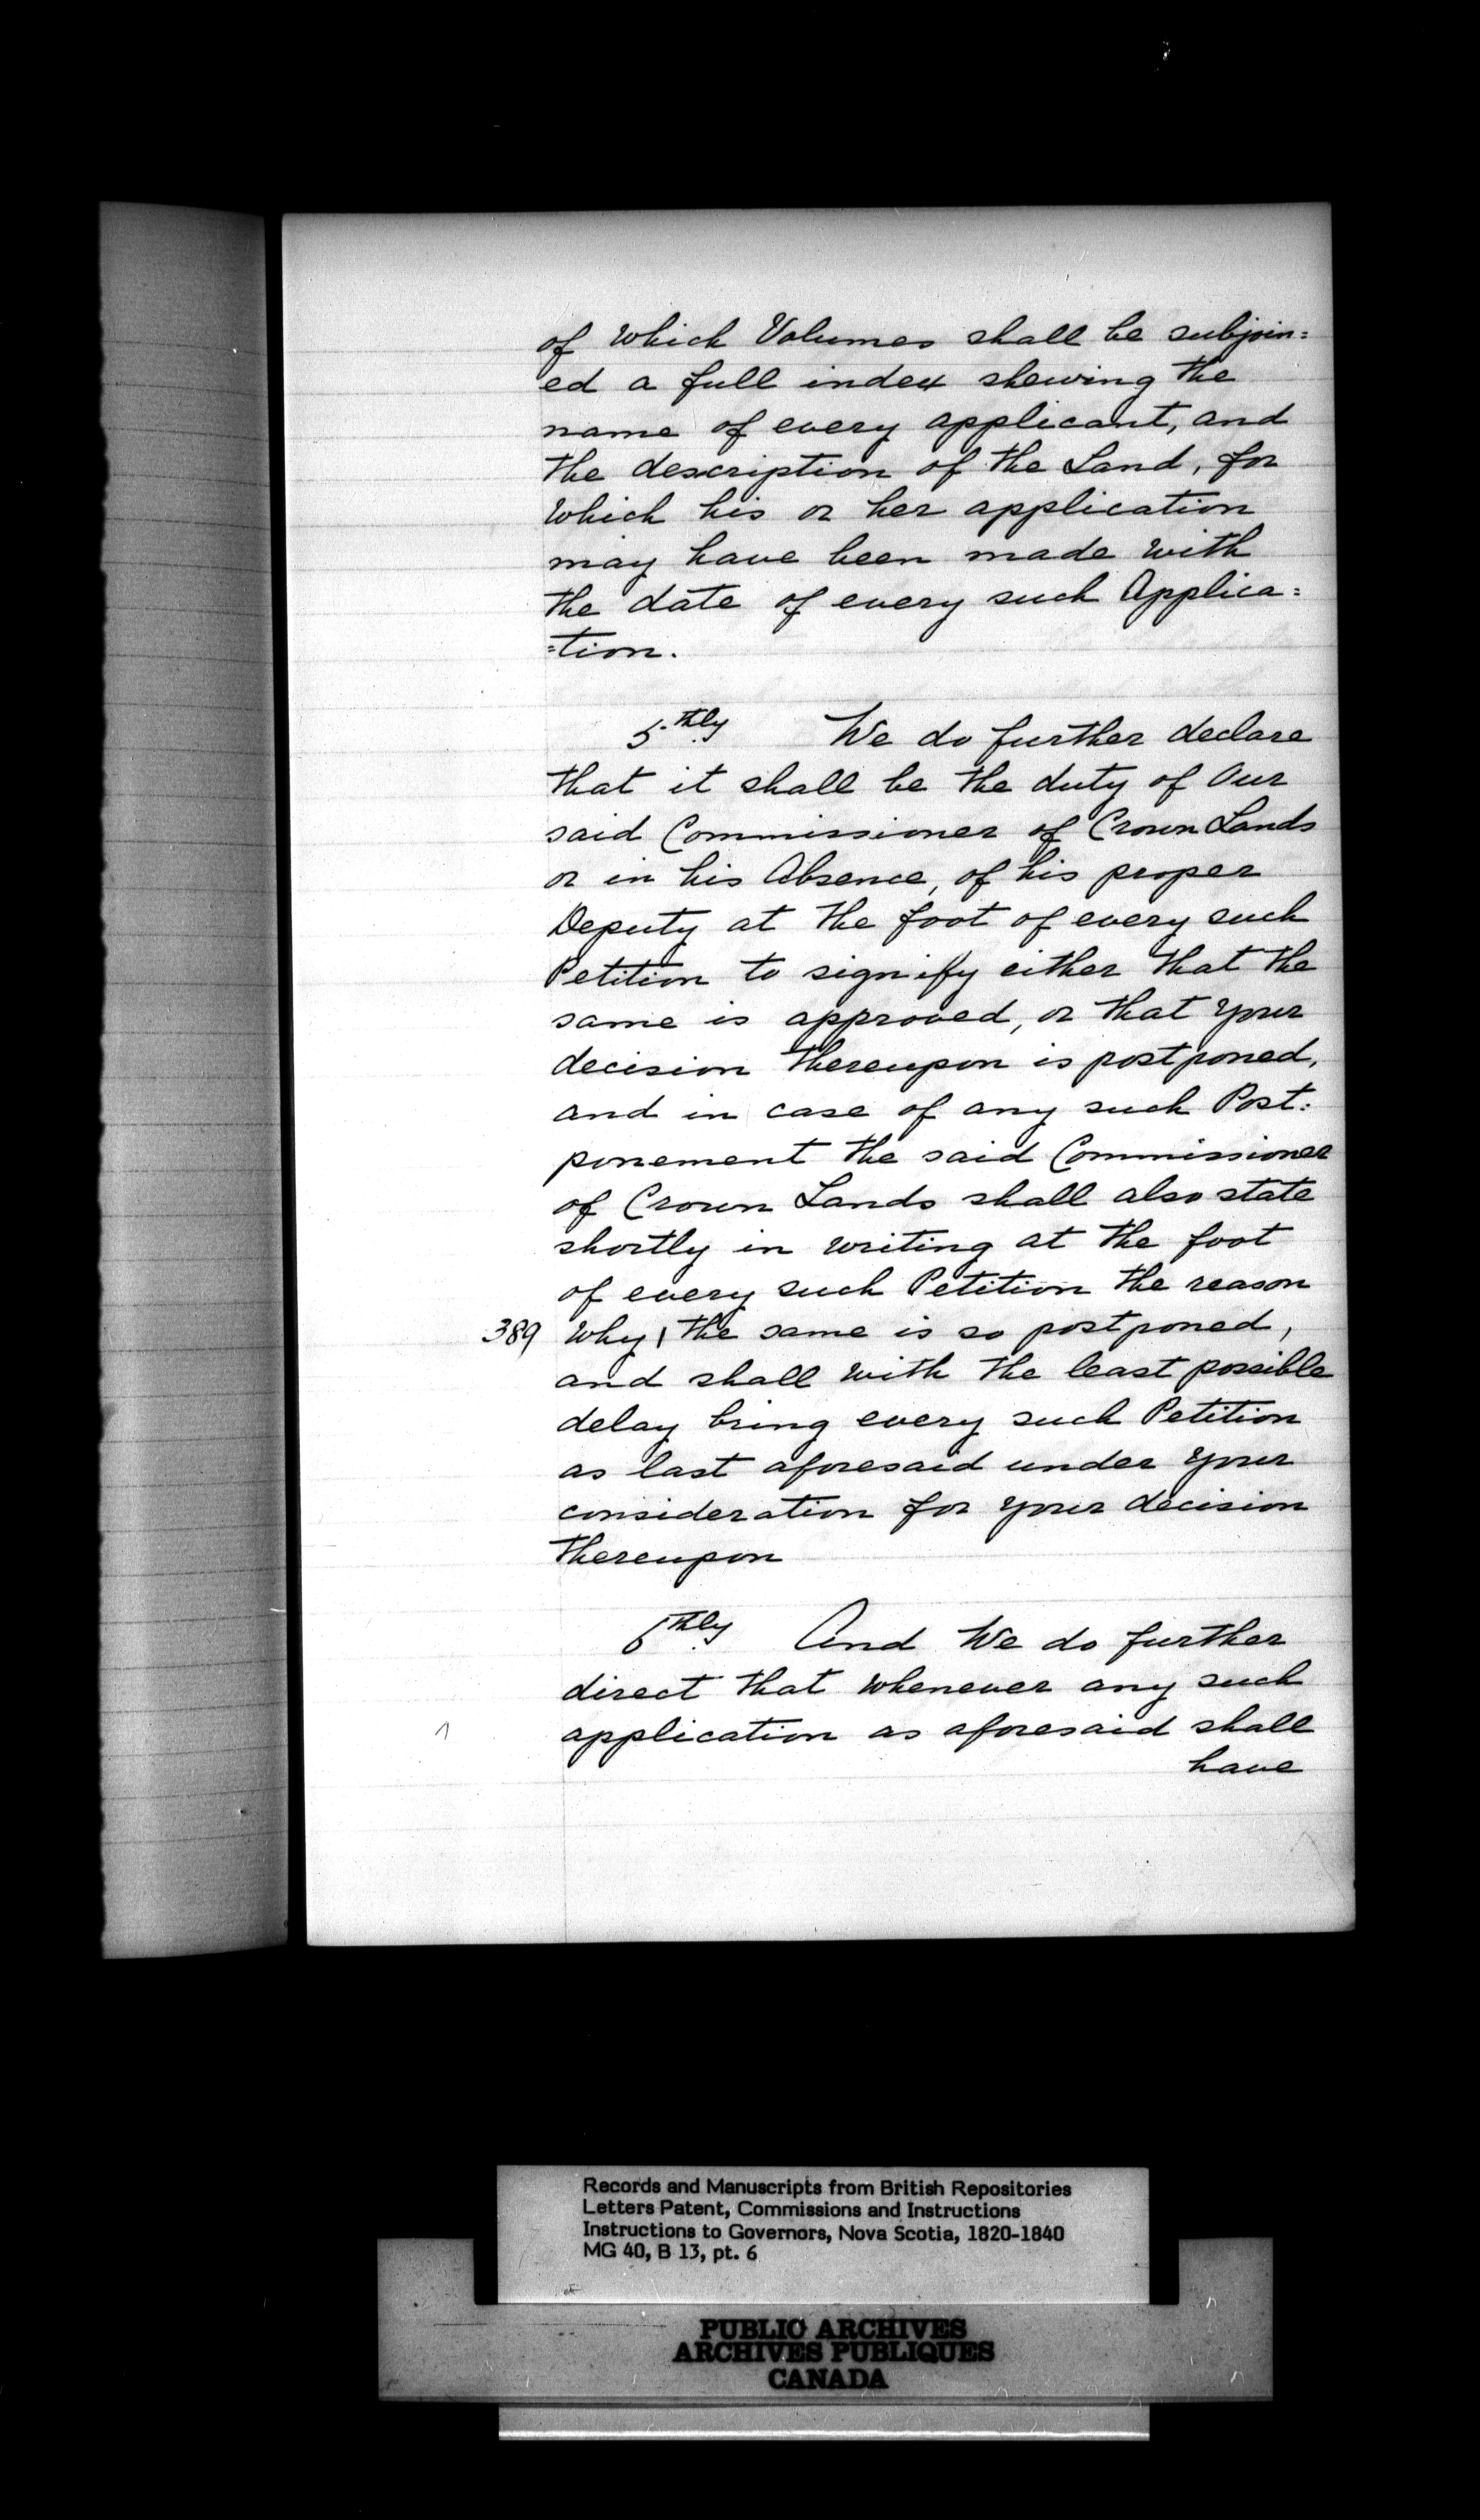 of which Volumes shall be subjoin=
ed a full index shewing the
name of every applicant, and
the description of the Land, for
which his or her application
may have been made with
the date of every such Applica=
=tion.
5thly We do further declare
that it shall be the duty of Our
said Commissioner of Crown Lands
or in his Absence, of his proper
Deputy at the foot of every such
Petition to signify either that the
same is approved, or that your
decision thereupon is postponed,
and in case of any such Post=
ponement the said Commissioner
of Crown Lands shall also state
shortly in writing at the foot
of every such Petition the reason
389 why | the same is so postponed,
and shall with the least possible
delay bring every such Petition
as last aforesaid under your
consideration for your decision
thereupon
6thly And We do further
direct that whenever any such
application as aforesaid shall
have
Records and Manuscripts from British Repositories
Letters Patent, Commissions and Instructions
Instructions to Governors, Nova Scotia, 1820-1840
MG 40, B 13, pt. 6
PUBLIC ARCHIVES
ARCHIVES PUBLIQUES
CANADA